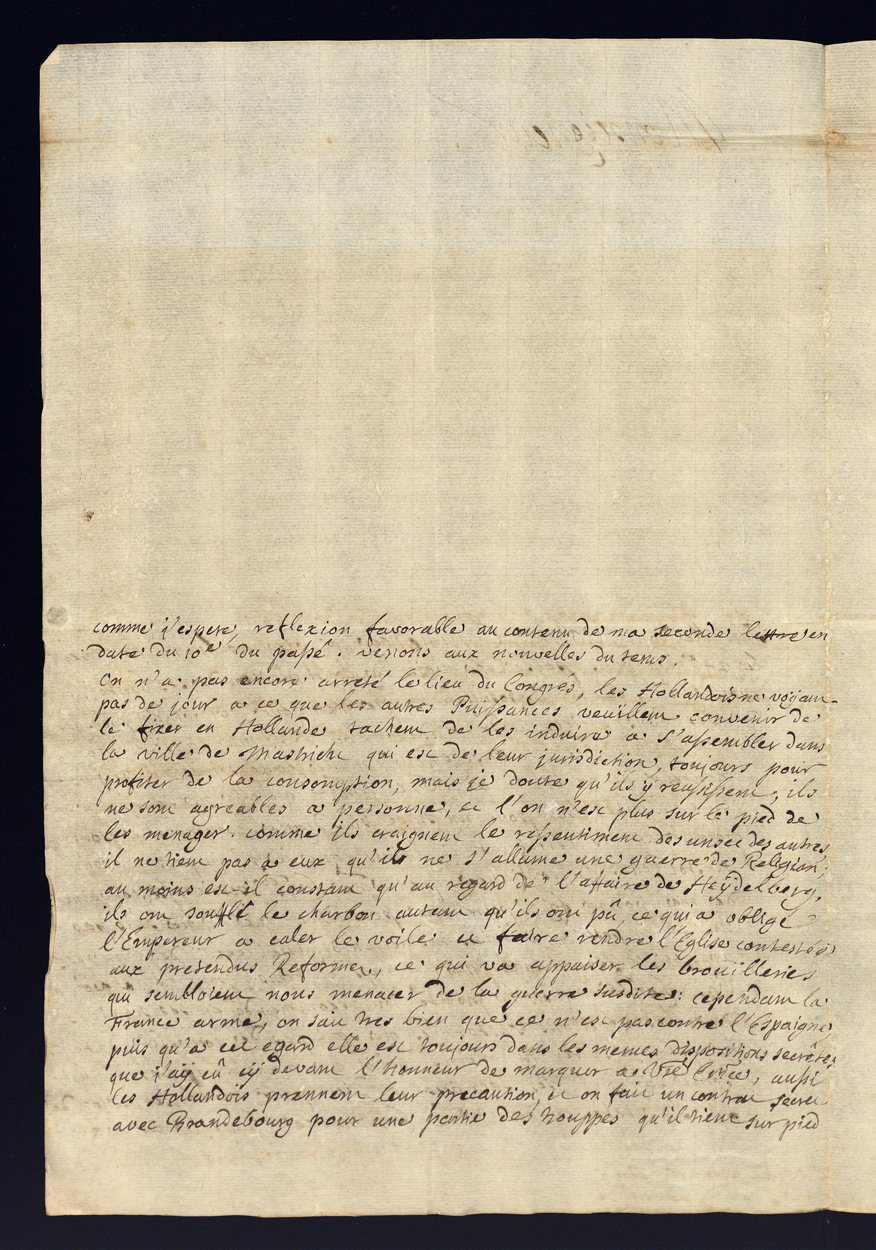 comme j'espere, reflexion favorable au contenu de ma seconde lettre en
date du 10e du passé. venons aux nouvelles du tems.
On n'a pas encore arreté le lieu du Congrés, les Hollandois ne voyant
pas de jour a ce que les autres Puissances veüillent convenir de
le fixer en Hollande tachent de les induire a s'assembler dans
la ville de Mastricht qui est de leur jurisdiction, toujours pour
profiter de la consomption, mais je doute qu'ils ÿ reussissent, ils
ne sont agreables a personne, et l'on n'est plus sur le pied de
les menager. comme ils craignent le ressentiment des uns et des autres
il ne tient pas à eux, qu'ils ne s'allume une guerre de Religion;
au moins est-il constant qu'au regard de l'affaire de Heÿdelberg,
ils ont soufflé le charbon autant qu'ils ont pû, ce qui a obligé
l'Empereur a caler le voile et faire rendre l'Eglise contestée
aux pretendus Reformez, ce qui va appaiser les brouilleries
qui sembloient nous menacer de la guerre susdite: cependant la
France arme, on sait tres bien que ce n'est pas contre l'Espaigne,
puis qu'a cet egard elle est toujours dans les memes dispositions secrétes,
que j'aÿ eû cÿ devant l'honneur de marquer a Vre Exce, aussi
les Hollandois prennent leur precaution, et on fait un contrat secret
avec Brandebourg pour une partie des trouppes qu'il tient sur pied